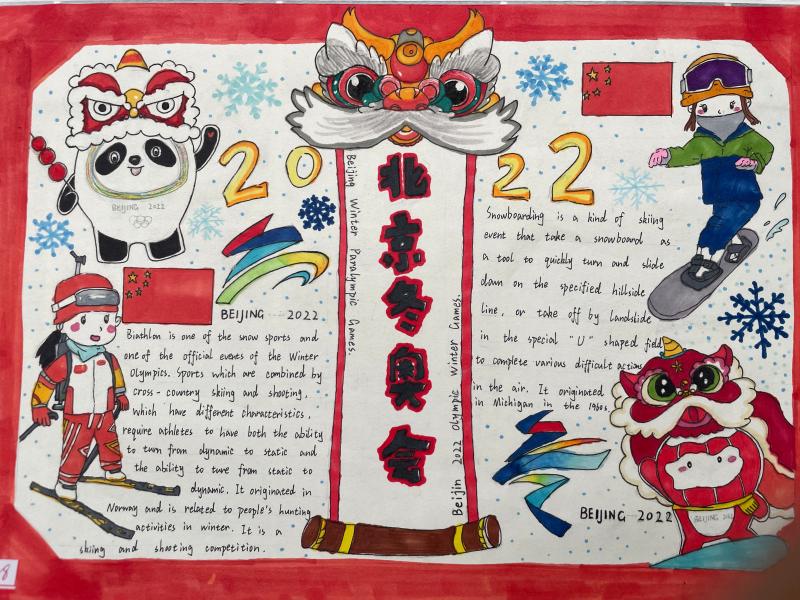 2022
北京冬奥会
Beijing Winter Paralympic Games.
Beijin 2022 Olympic Winter Games.
BEIJING 2022
BEIJING 2022
Biathlon is one of the snow sports and
one of the official events of the Winter
Olympics. Sports which are combined by
cross-country skiing and shooting,
which have different characteristics,
require athletes to have both the ability
to turn from dynamic to static and
the ability to ture from static to
dynamic. It originated in
Norway and is related to people's hunting
activities in winter. It is a
skiing and shooting competition.
Snowboarding is a kind of skiing
event that take a snowboard as
a tool to quickly turn and slide
down on the specified hillside
line, or take off by landslide
in the special "U" shaped field
to complete various difficult actions
in the air. It originated
in Michigan in the 1960s
BEIJING 2022
BEIJING 202
8